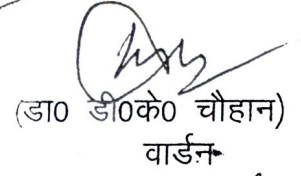 (डा0 डी0के0 चौहान)
वार्डन